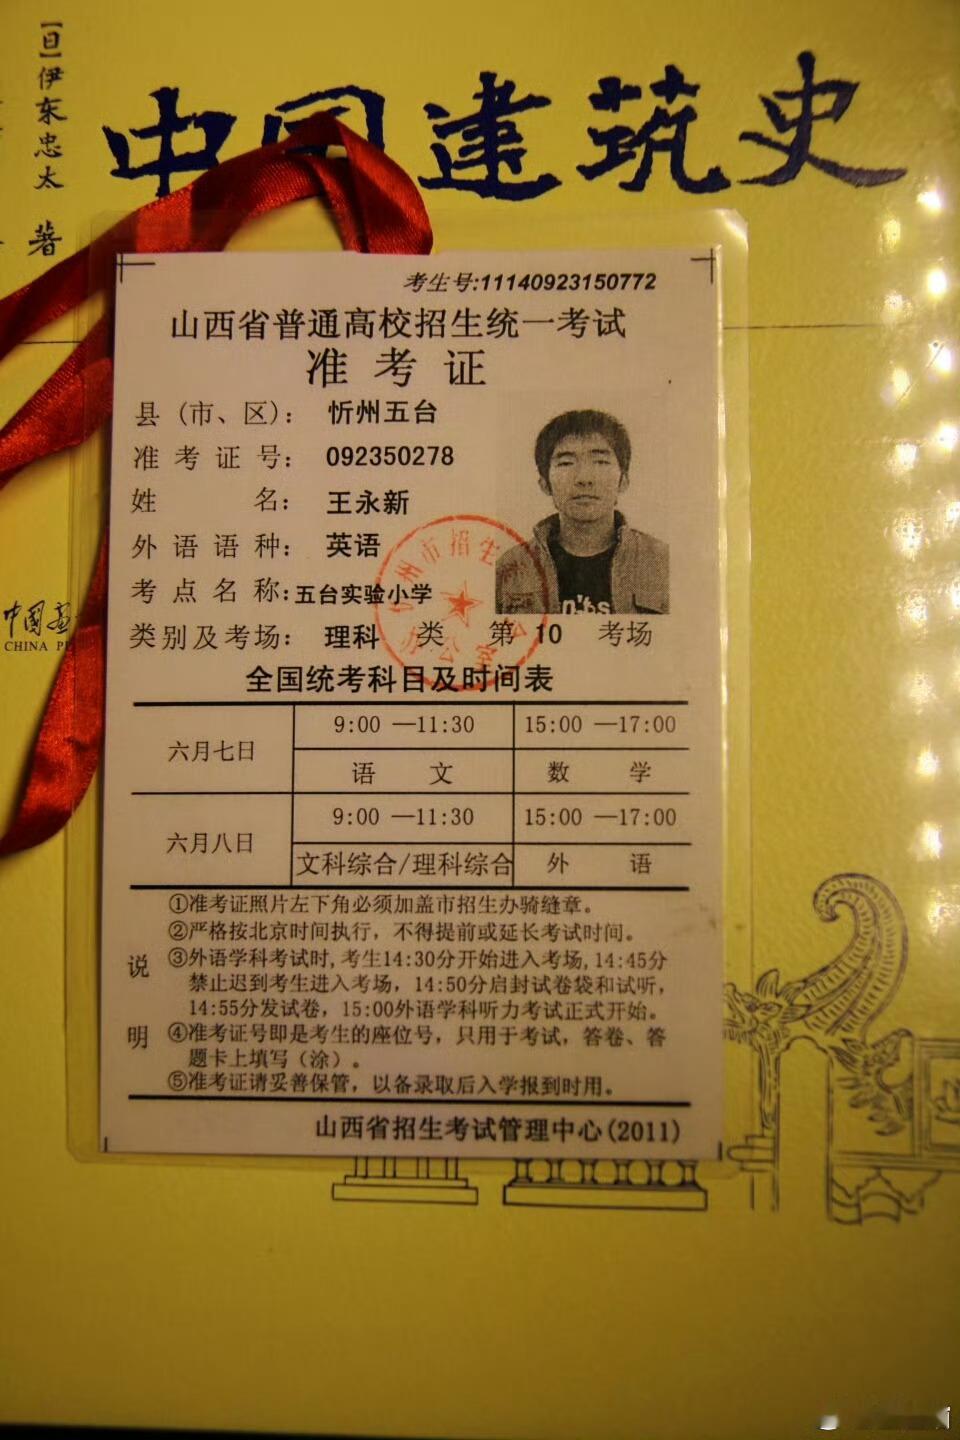 [日]伊东忠太 著
中国建筑史
中国画
CHINA P
考生号:11140923150772
山西省普通高校招生统一考试
准考证
县(市、区): 忻州五台
准考证号: 092350278
姓名: 王永新
外语语种: 英语
考点名称:五台实验小学
类别及考场: 理科 类 第 10 考场
全国统考科目及时间表
六月七日 9:00 —11:30 15:00 —17:00
语文 数学
六月八日 9:00 —11:30 15:00 —17:00
文科综合/理科综合 外语
说明
①准考证照片左下角必须加盖市招生办骑缝章。
②严格按北京时间执行，不得提前或延长考试时间。
③外语学科考试时,考生14:30分开始进入考场,14:45分
禁止迟到考生进入考场，14:50分启封试卷袋和试听，
14:55分发试卷，15:00外语学科听力考试正式开始。
④准考证号即是考生的座位号，只用于考试，答卷、答
题卡上填写（涂）。
⑤准考证请妥善保管，以备录取后入学报到时用。
山西省招生考试管理中心(2011)